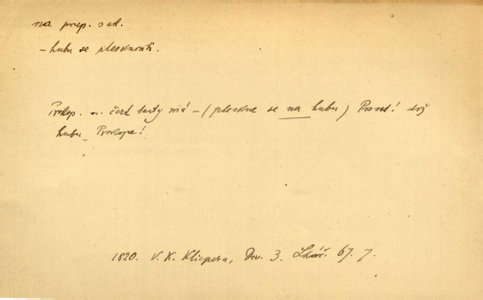 na praep. s ak.
– hubu se plesknouti.
Prokop. ... čert tady má – (pleskne se na hubu) Pravd! drž
hubu, Prokope!
1820. V. K. Klicpera, Div. 3. Lhář. 67. 7.